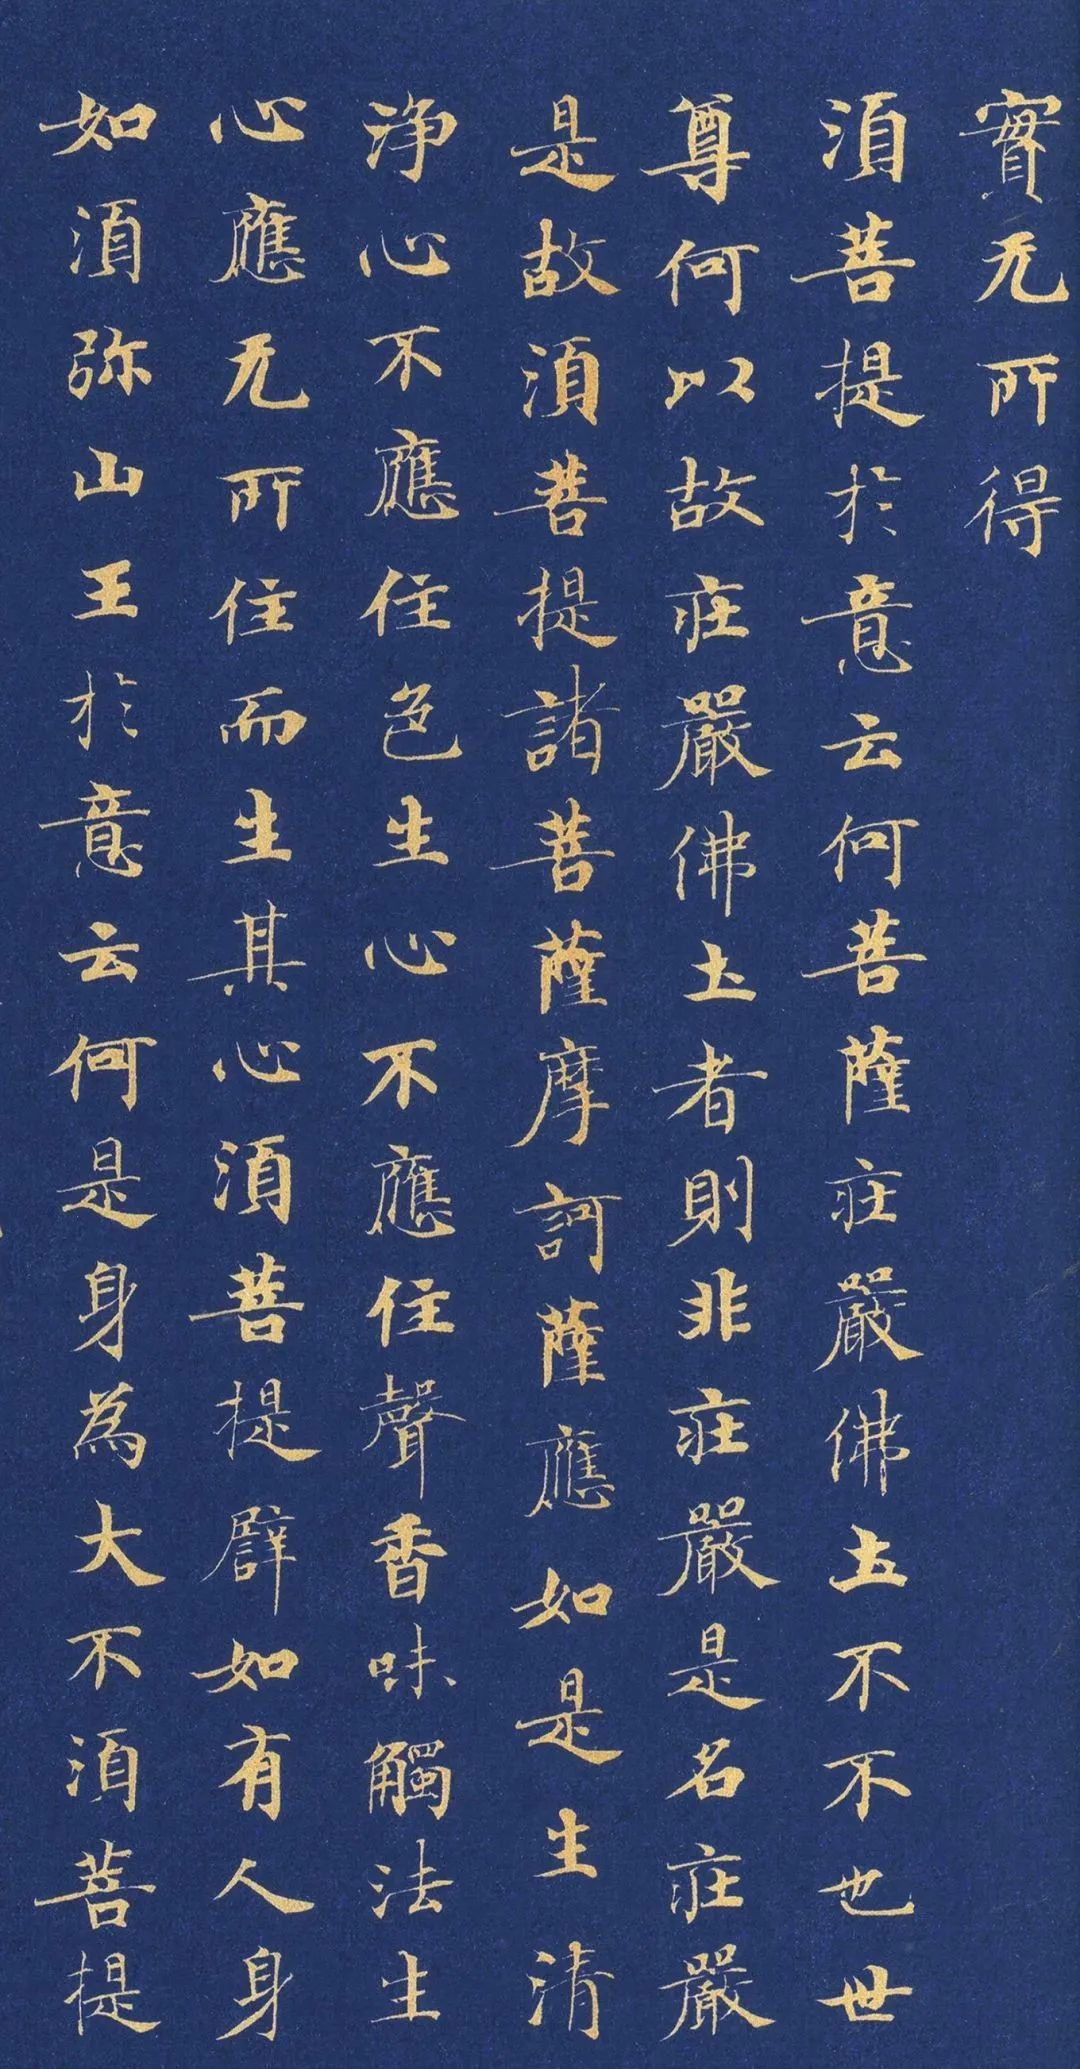 實无所得
須菩提於意云何菩薩莊嚴佛土不不也世
尊何以故莊嚴佛土者則非莊嚴是名莊嚴
是故須菩提諸菩薩摩訶薩應如是生清
淨心不應住色生心不應住聲香味觸法生
心應无所住而生其心須菩提譬如有人身
如須弥山王於意云何是身為大不須菩提